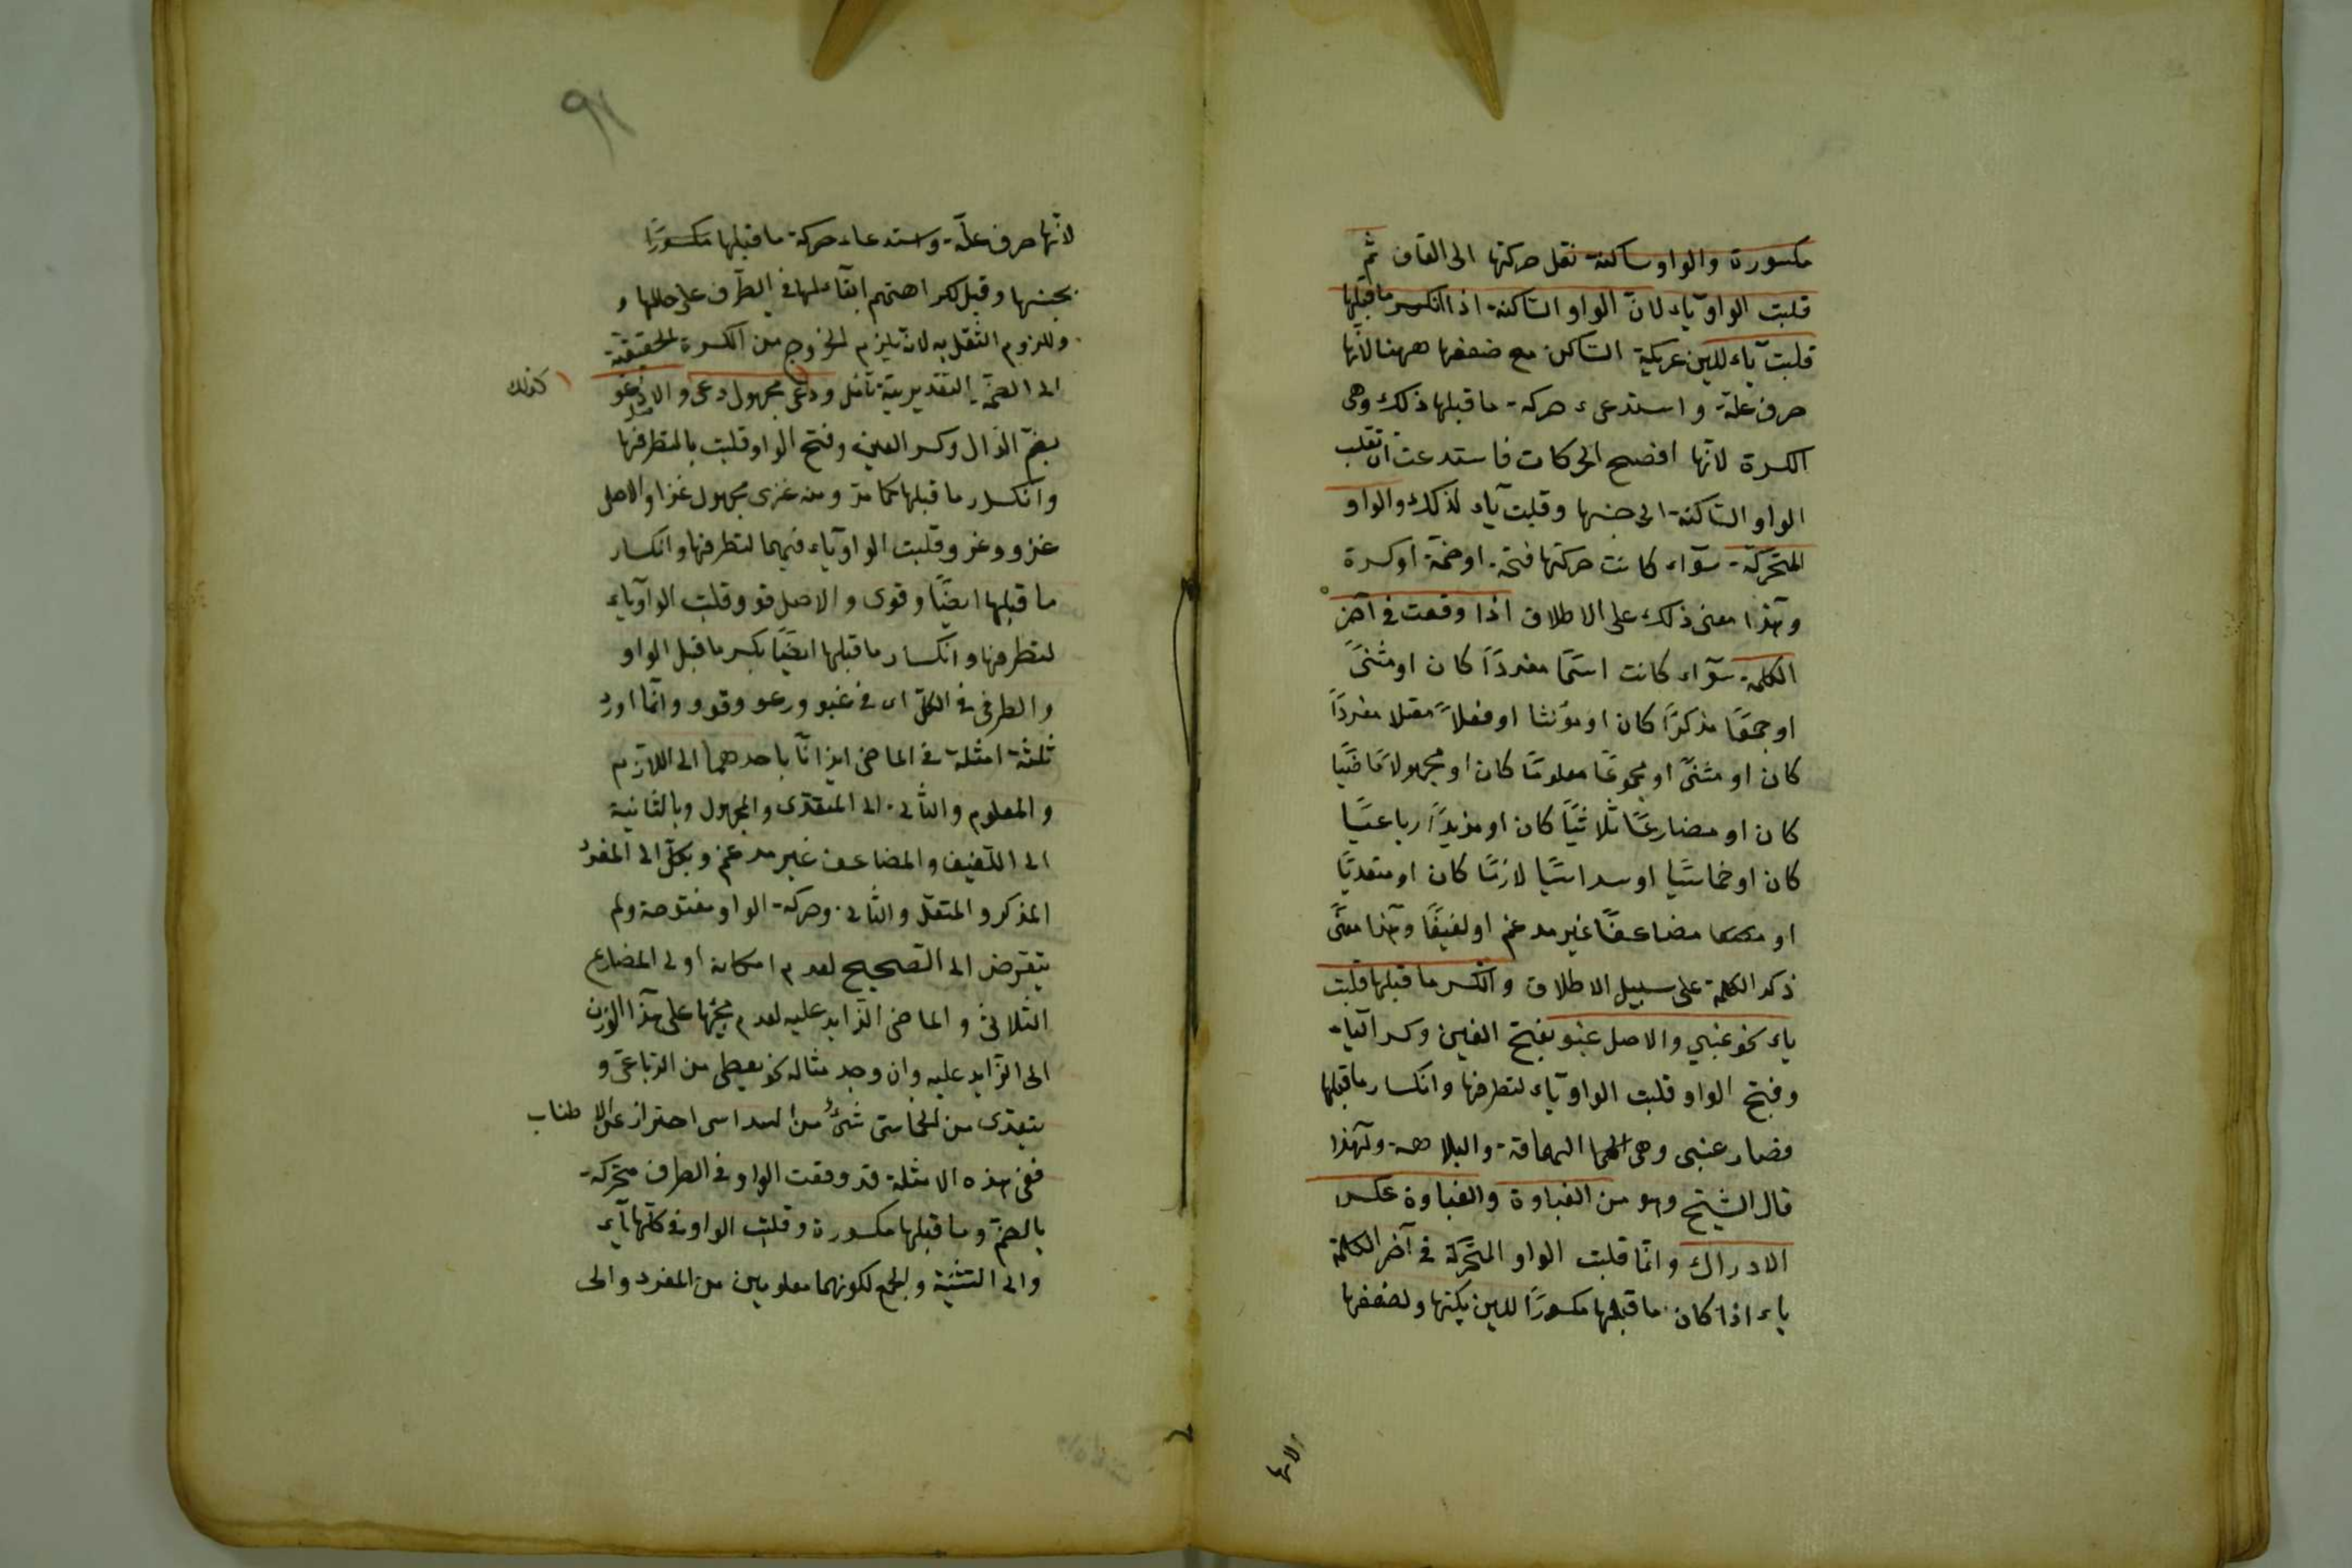 مكسورة والواو ساكنة نقل حركتها الى القاف ثم
قلبت الواو ياء لان الواو الساكنة اذا انكسر ما قبلها
قلبت ياء للين عريكة الساكن مع ضعفها ههنا لانها
حرف علة واستدعى حركة ما قبلها ذلك وهى
الكسرة لانها افصح الحركات فاستدعت ان تقلب
الواو الساكنة الى جنسها وقلبت ياء لذلك والواو
المتحركة سوآء كانت حركتها فتحة او ضمة او كسرة
وهذا معنى ذلك على الاطلاق اذا وقعت فى آخر
الكلمة سوآء كانت اسمًا مفردًا كان او مثنىً
او جمعًا مذكرًا كان او مؤنثا او فعلاً معتلا مفردًا
كان او مثنىً او مجموعًا معلومًا كان او مجهولاً ماضيًا
كان او مضارعًا ثلاثيًا كان او مزيدًا رباعيًا
كان او خماسيًا او سداسيًا لازمًا كان او متعديًا
او مضاعفًا غير مدغم او لفيفًا وهذا معنى
ذكر الكلمة على سبيل الاطلاق وانكسر ما قبلها قلبت
ياء نحو غبي والاصل غبو بفتح الغين وكسر الباء
وفتح الواو قلبت الواو ياء لتطرفها وانكسار ما قبلها
فصار غبى وهى الحماقة والبلاهة ولهذا
قال الشيخ وهو من الغباوة والغباوة عكس
الادراك وانما قلبت الواو المتحركة فى آخر الكلمة
ياء اذا كان ما قبلها مكسورًا للين يكنها ولضعفها
لانها
٩١
لانها حرف علة واستدعاء حركة ما قبلها مكسورًا
بجنسها وقيل لكراهتهم ابقاءلها فى الطرف على حالها و
وللزوم الثقل به لانه يلزم الخروج من الكسرة الحقيقية
الى الضمة التقديرية تأمل ودعى مجهول دعى والاصل دعو
كذلك
بضم الدال وكسر العين وفتح الواو قلبت يا لتطرفها
وانكسار ما قبلها كما مر ومنه غزى مجهول غزا والاصل
غزو ودعو وقلبت الواو ياء فيهما لتطرفها وانكسار
ما قبلها ايضًا وقوى والاصل قوو وقلبت الواو ياء
لتطرفها وانكسار ما قبلها ايضًا بكسر ما قبل الواو
والطرفى فى الكل اى فى غبو ودعو وقوو وانما اورد
ثلثة امثلة فى الماضى ايذانًا باحدهما الى اللازم
والمعلوم والثانى الى المتعدى والمجهول وبالثانية
الى اللفيف والمضاعف غير مدغم وبكل الى المفرد
المذكر والمتعل والثانى وحركة الواو مفتوحة ولم
يتعرض الى الصحيح لعدم امكانه او لى المضارع
الثلاثى والماضى الزايد عليه لعدم مجيئها على هذا الوزن
الى الزايد عليه وان وجد مثاله نحو يعطى من الرباعى و
يتعدى من الخماسى شئ من السداسى احتراز عن الاطناب
ففى هذه الامثلة قد وقعت الواو فى الطرف متحركة
بالضم وما قبلها مكسورة وقلبت الواو فى كلها ياء
والى التثنية والجمع لكونهما معلومين من المفرد والى